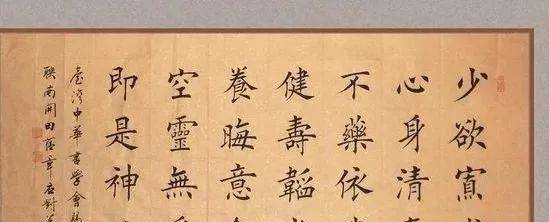 少欲寡
心身清
不藥依
健壽韜
養晦意
空靈無
即是神
臺灣中華書學會
聯南開田蔭章应對